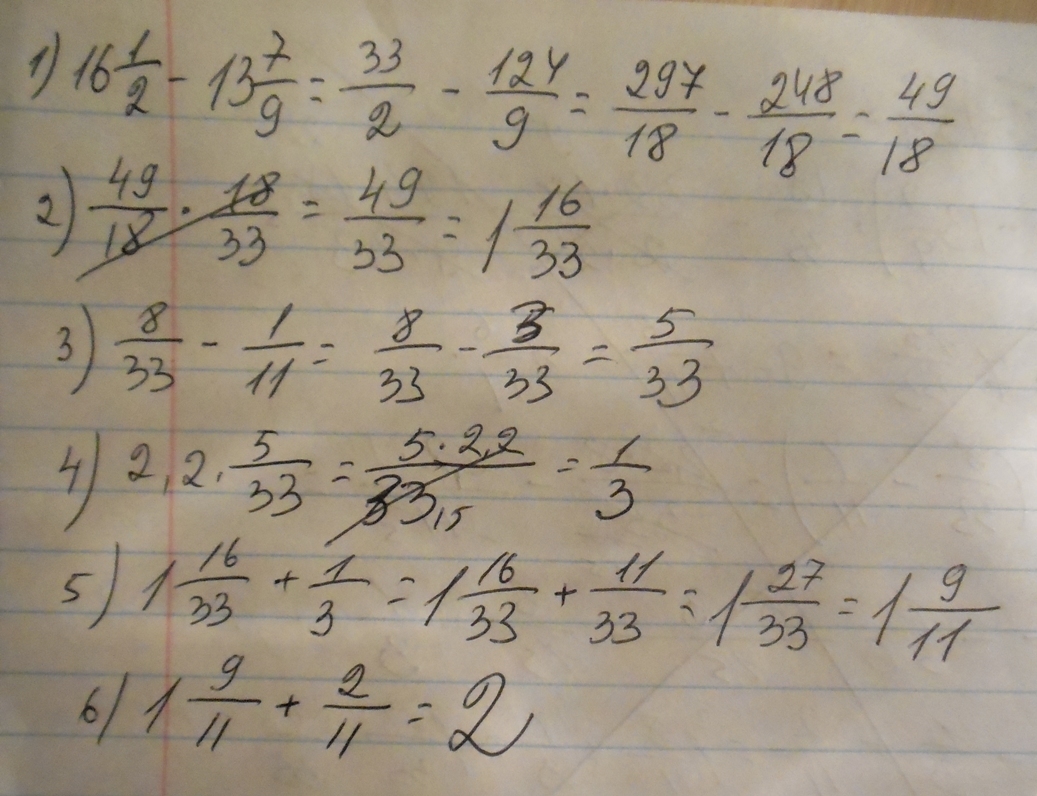 1) 16 1/2 - 13 7/9 = 33/2 - 124/9 = 297/18 - 248/18 = 49/18
2) 49/18 · 18/33 = 49/33 = 1 16/33
3) 8/33 - 1/11 = 8/33 - 3/33 = 5/33
4) 2,2 · 5/33 = 5·2,2/33 15 = 1/3
5) 1 16/33 + 1/3 = 1 16/33 + 11/33 = 1 27/33 = 1 9/11
6) 1 9/11 + 2/11 = 2